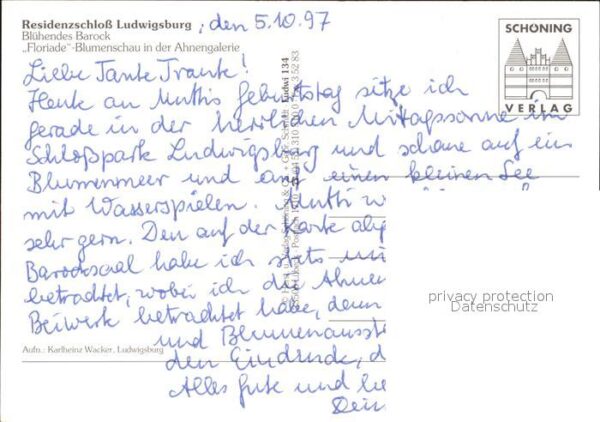 Residenzschloß Ludwigsburg, den 5.10.97
Blühendes Barock
„Floriade“-Blumenschau in der Ahnengalerie
SCHÖNING
VERLAG
Liebe Tante Traute!
Heute an Muttis Geburtstag sitze ich
gerade in der herrlichen Mittagssonne im
Schloßpark Ludwigsburg und schaue auf ein
Blumenmeer und auf einen kleinen See
mit Wasserspielen. Mutti w
sehr gern. Den auf der Karte abg
Barocksaal habe ich stets
betrachtet, wobei ich die Ahnen
Beiwerk betrachtet habe, denn
und Blumenausst
den Eindruck, d
Alles Gute und lie
Dein
Aufn.: Karlheinz Wacker, Ludwigsburg
Ludwi 134
privacy protection
Datenschutz